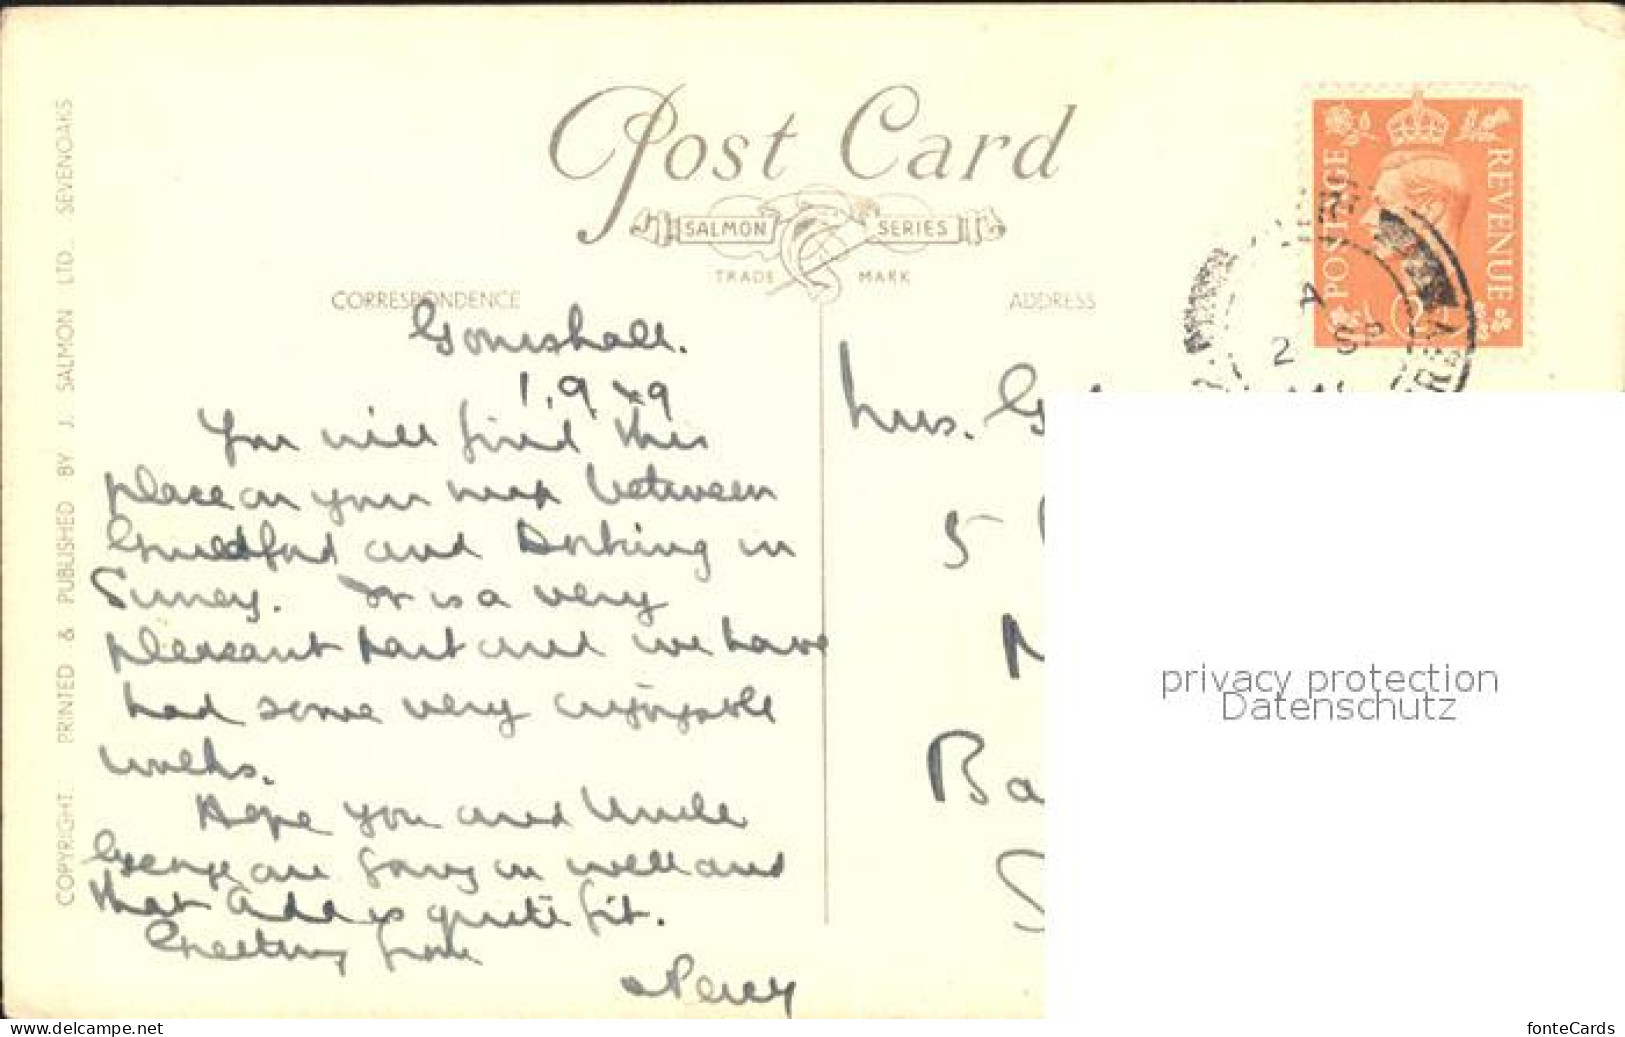 Post Card
SALMON SERIES
TRADE MARK
CORRESPONDENCE
ADDRESS
POSTAGE
REVENUE
2 SP
COPYRIGHT. PRINTED & PUBLISHED BY J. SALMON LTD. SEVENOAKS
Gomshall.
1.9.49
You will find this
place on your map between
Guildford and Dorking in
Surrey. It is a very
pleasant part and we have
had some very enjoyable
walks.
Hope you and Uncle
George are going on well and
that Ada is quite fit.
Greetings from
Percy
Mrs. G
5
Ba
S
privacy protection
Datenschutz
www.delcampe.net
fonteCards